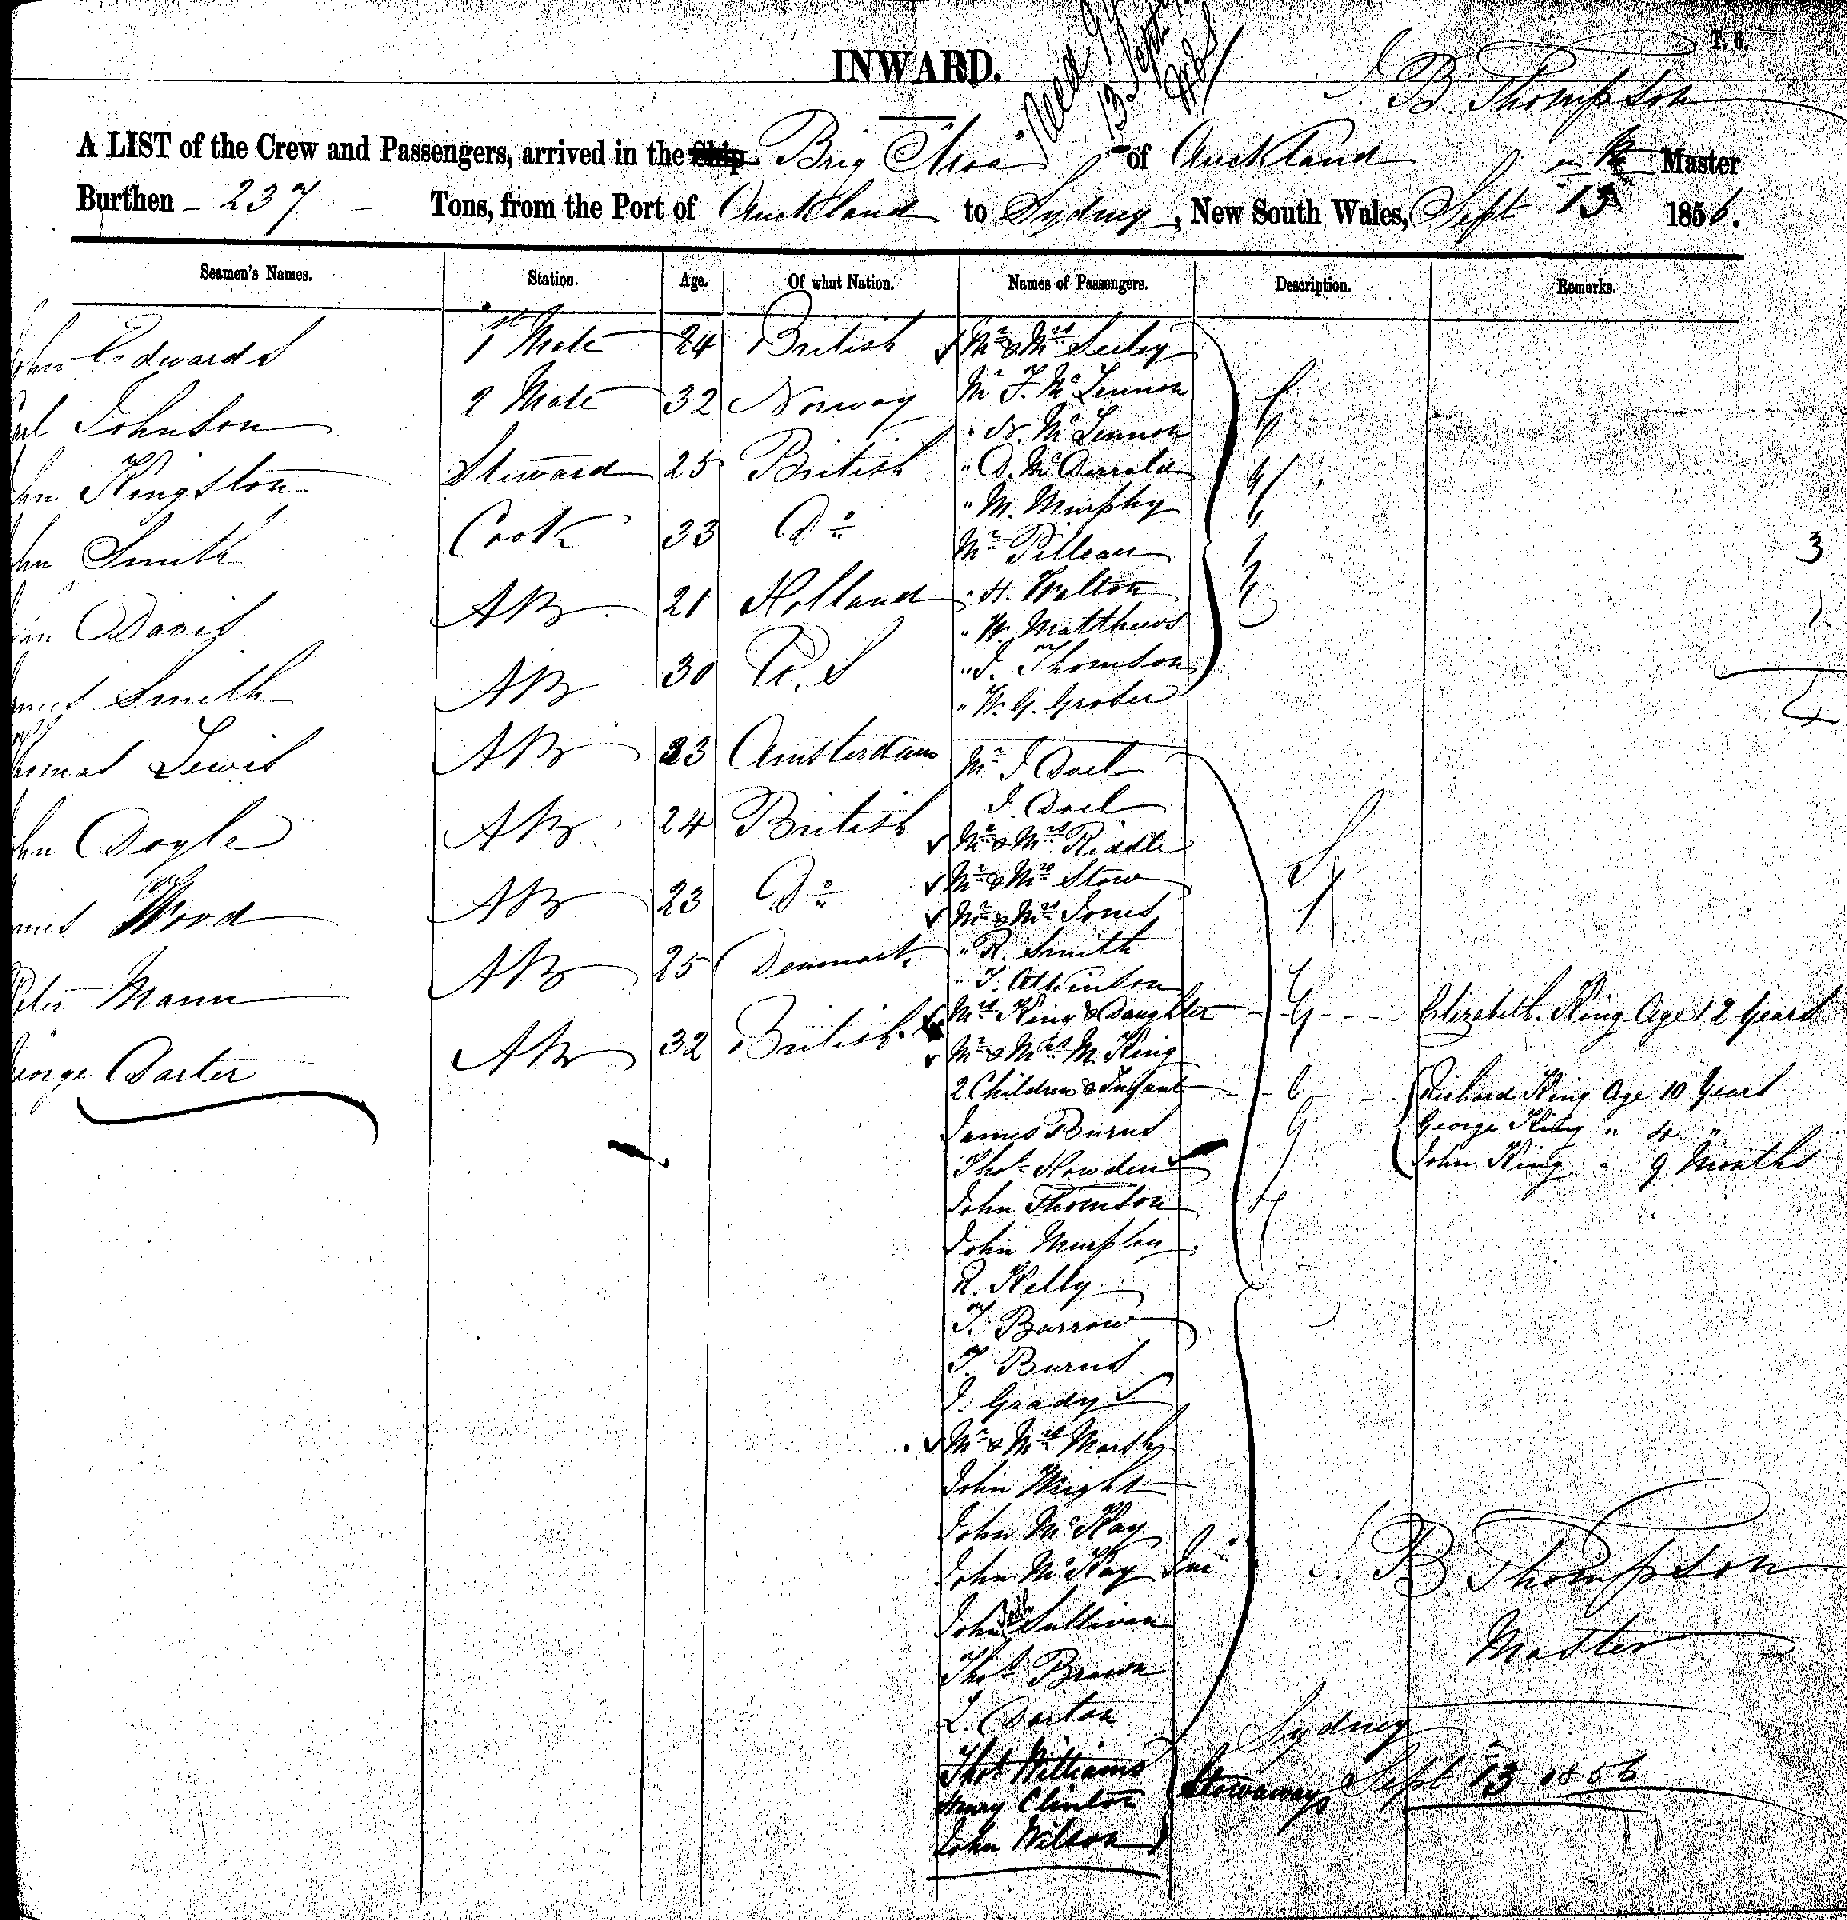 INWARD.
T. 6.
J. B. Thompson
A LIST of the Crew and Passengers, arrived in the Ship Brig "Moa" of Auckland Master
Burthen - 237 - Tons, from the Port of Auckland to Sydney, New South Wales, Sept 13 1856.
Seamen's Names. Station. Age. Of what Nation. Names of Passengers. Description. Remarks.
Edwards 1st Mate 24 British Mr & Mrs Seeley
Mr F. McLennon
Johnson 2 Mate 32 Norway
" N. McLennon
Kingston Steward 25 British " D. McDonald
" M. Murphy
Smith Cook 33 Do Mr Pilleau
3
Davis AB 21 Holland " H. Walton
" W. Matthews
Smith AB 30 U.S " J. Thomson
" W. G. Grober
Lewis AB 23 Amsterdam Mr J Dael
J. Dael
Doyle AB 24 British Mr & Mrs Riddle
Mr & Mrs Stow
Wood AB 23 Do Mr & Mrs Jones
" R. Smith
Mann AB 25 Denmark " T. Atkinson
Mrs King & Daughter Elizabeth King Age 12 Years
George Carter AB 32 British Mr & Mrs M. King
2 Children & Infant Richard King Age 10 Years
James Burns George King " 4 "
Thos Howden John King " 9 Months
John Thomson
John Murphy
R. Kelly
T. Barrow
T. Burns
J. Grady
Mr & Mrs Marsh
John Wright
John McKay
John McKay Jnr
J. B Thompson
John Sullivan
Master
Thos Brown
L. Dorton
Sydney
Thos Williams
Henry Clinton Stowaways Sept 13 1856
John Wilson